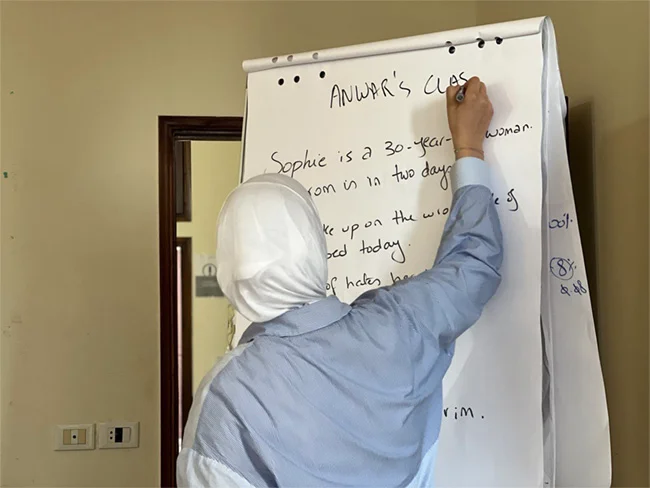 ANWAR'S CLAS
Sophie is a 30-year- woman.
rom is in two day
ke up on the wro e of
bed today.
of hates he
rim.
00%
8%